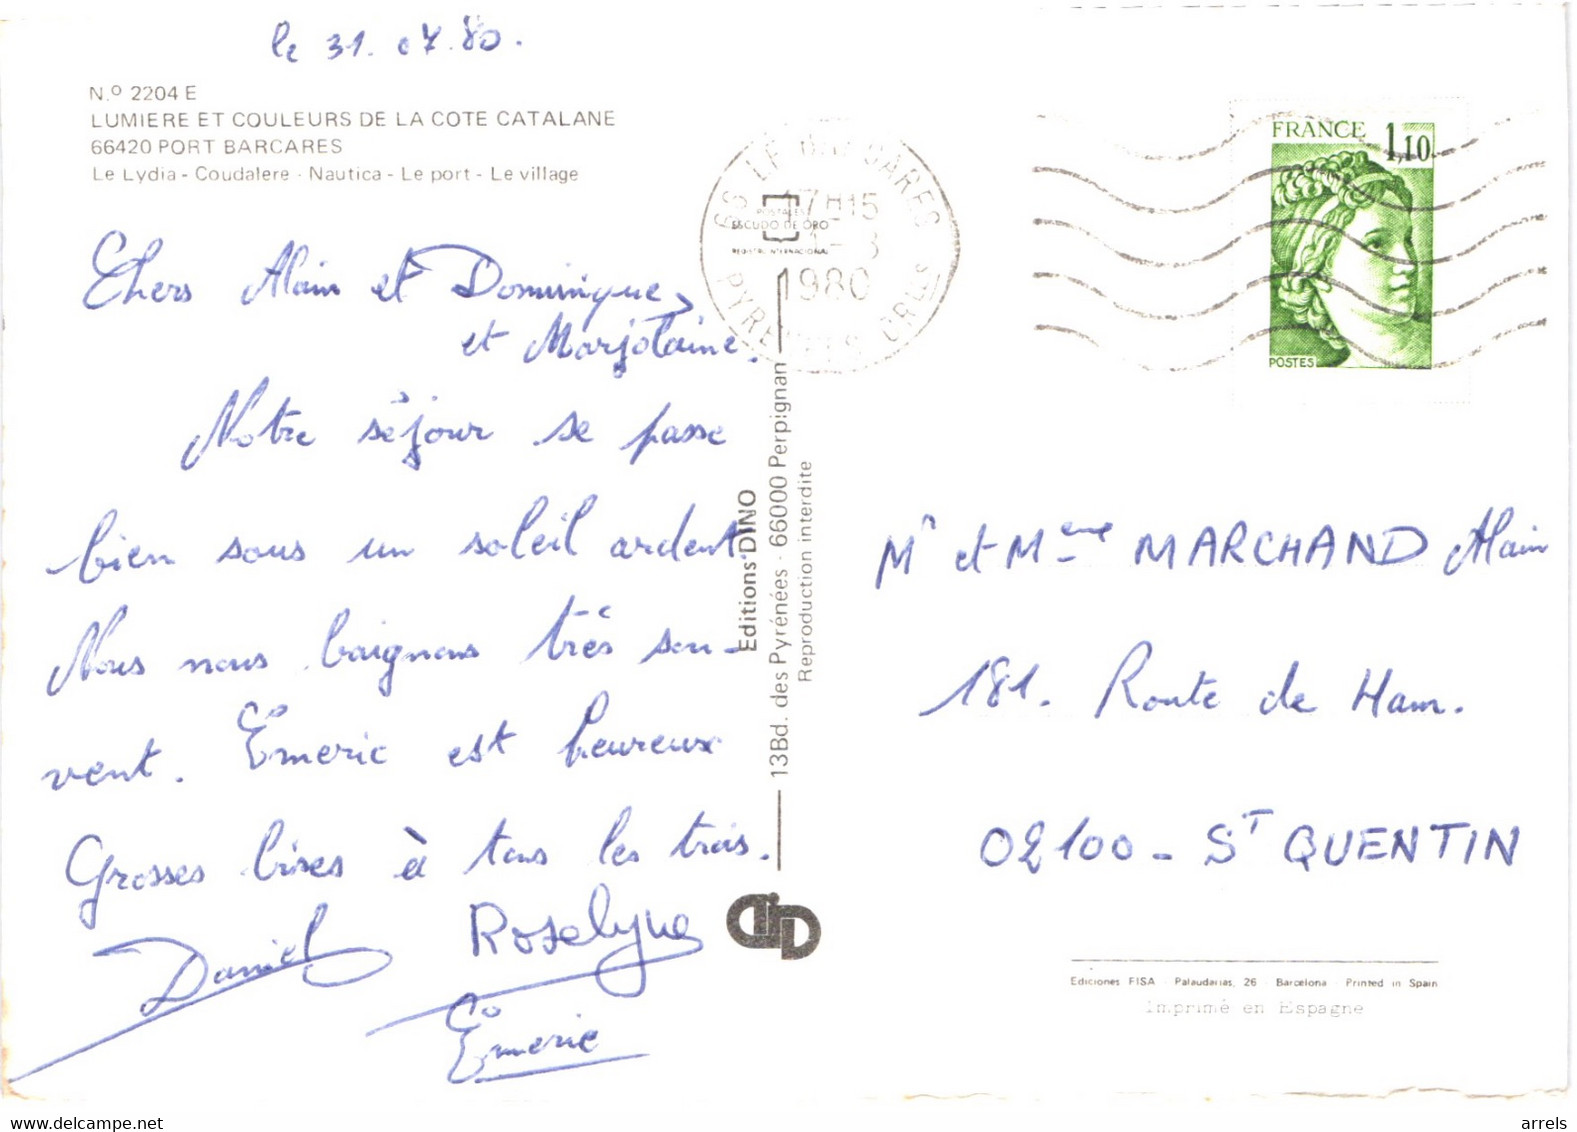 le 31.07.80.
N.º 2204 E
LUMIERE ET COULEURS DE LA COTE CATALANE
66420 PORT BARCARES
Le Lydia - Coudalere - Nautica - Le port - Le village
Chers Alain et Dominique,
et Marjolaine.
Notre séjour se passe
bien sous un soleil ardent.
Nous nous baignons très sou-
vent. Emeric est heureux
Grosses bises à tous les trois.
Daniel Roselyne
Emeric
POSTALES
ESCUDO DE ORO
REGISTRO INTERNACIONAL
66 LE BARCARES
17H15
1-8
1980
PYRENEES ORLES
Editions DINO
13Bd. des Pyrénées - 66000 Perpignan
Reproduction interdite
FRANCE 1,10
POSTES
Mr et Mme MARCHAND Alain
181. Route de Ham.
02100 - ST QUENTIN
Ediciones FISA - Palaudarias, 26 - Barcelona - Printed in Spain
Imprimé en Espagne
arrels